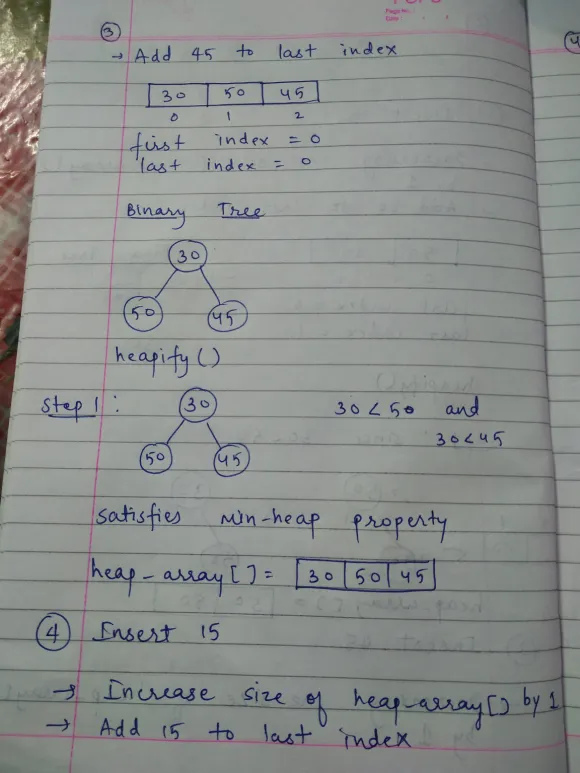 Page No.
Date
③
→ Add 45 to last index
30 50 45
0 1 2
first index = 0
last index = 0
Binary Tree
30
50 45
heapify()
Step 1:
30 30 < 50 and
50 45 30 < 45
satisfies Min-heap property
heap-array[] = 30 50 45
④ Insert 15
→ Increase size of heap-array[] by 1
→ Add 15 to last index